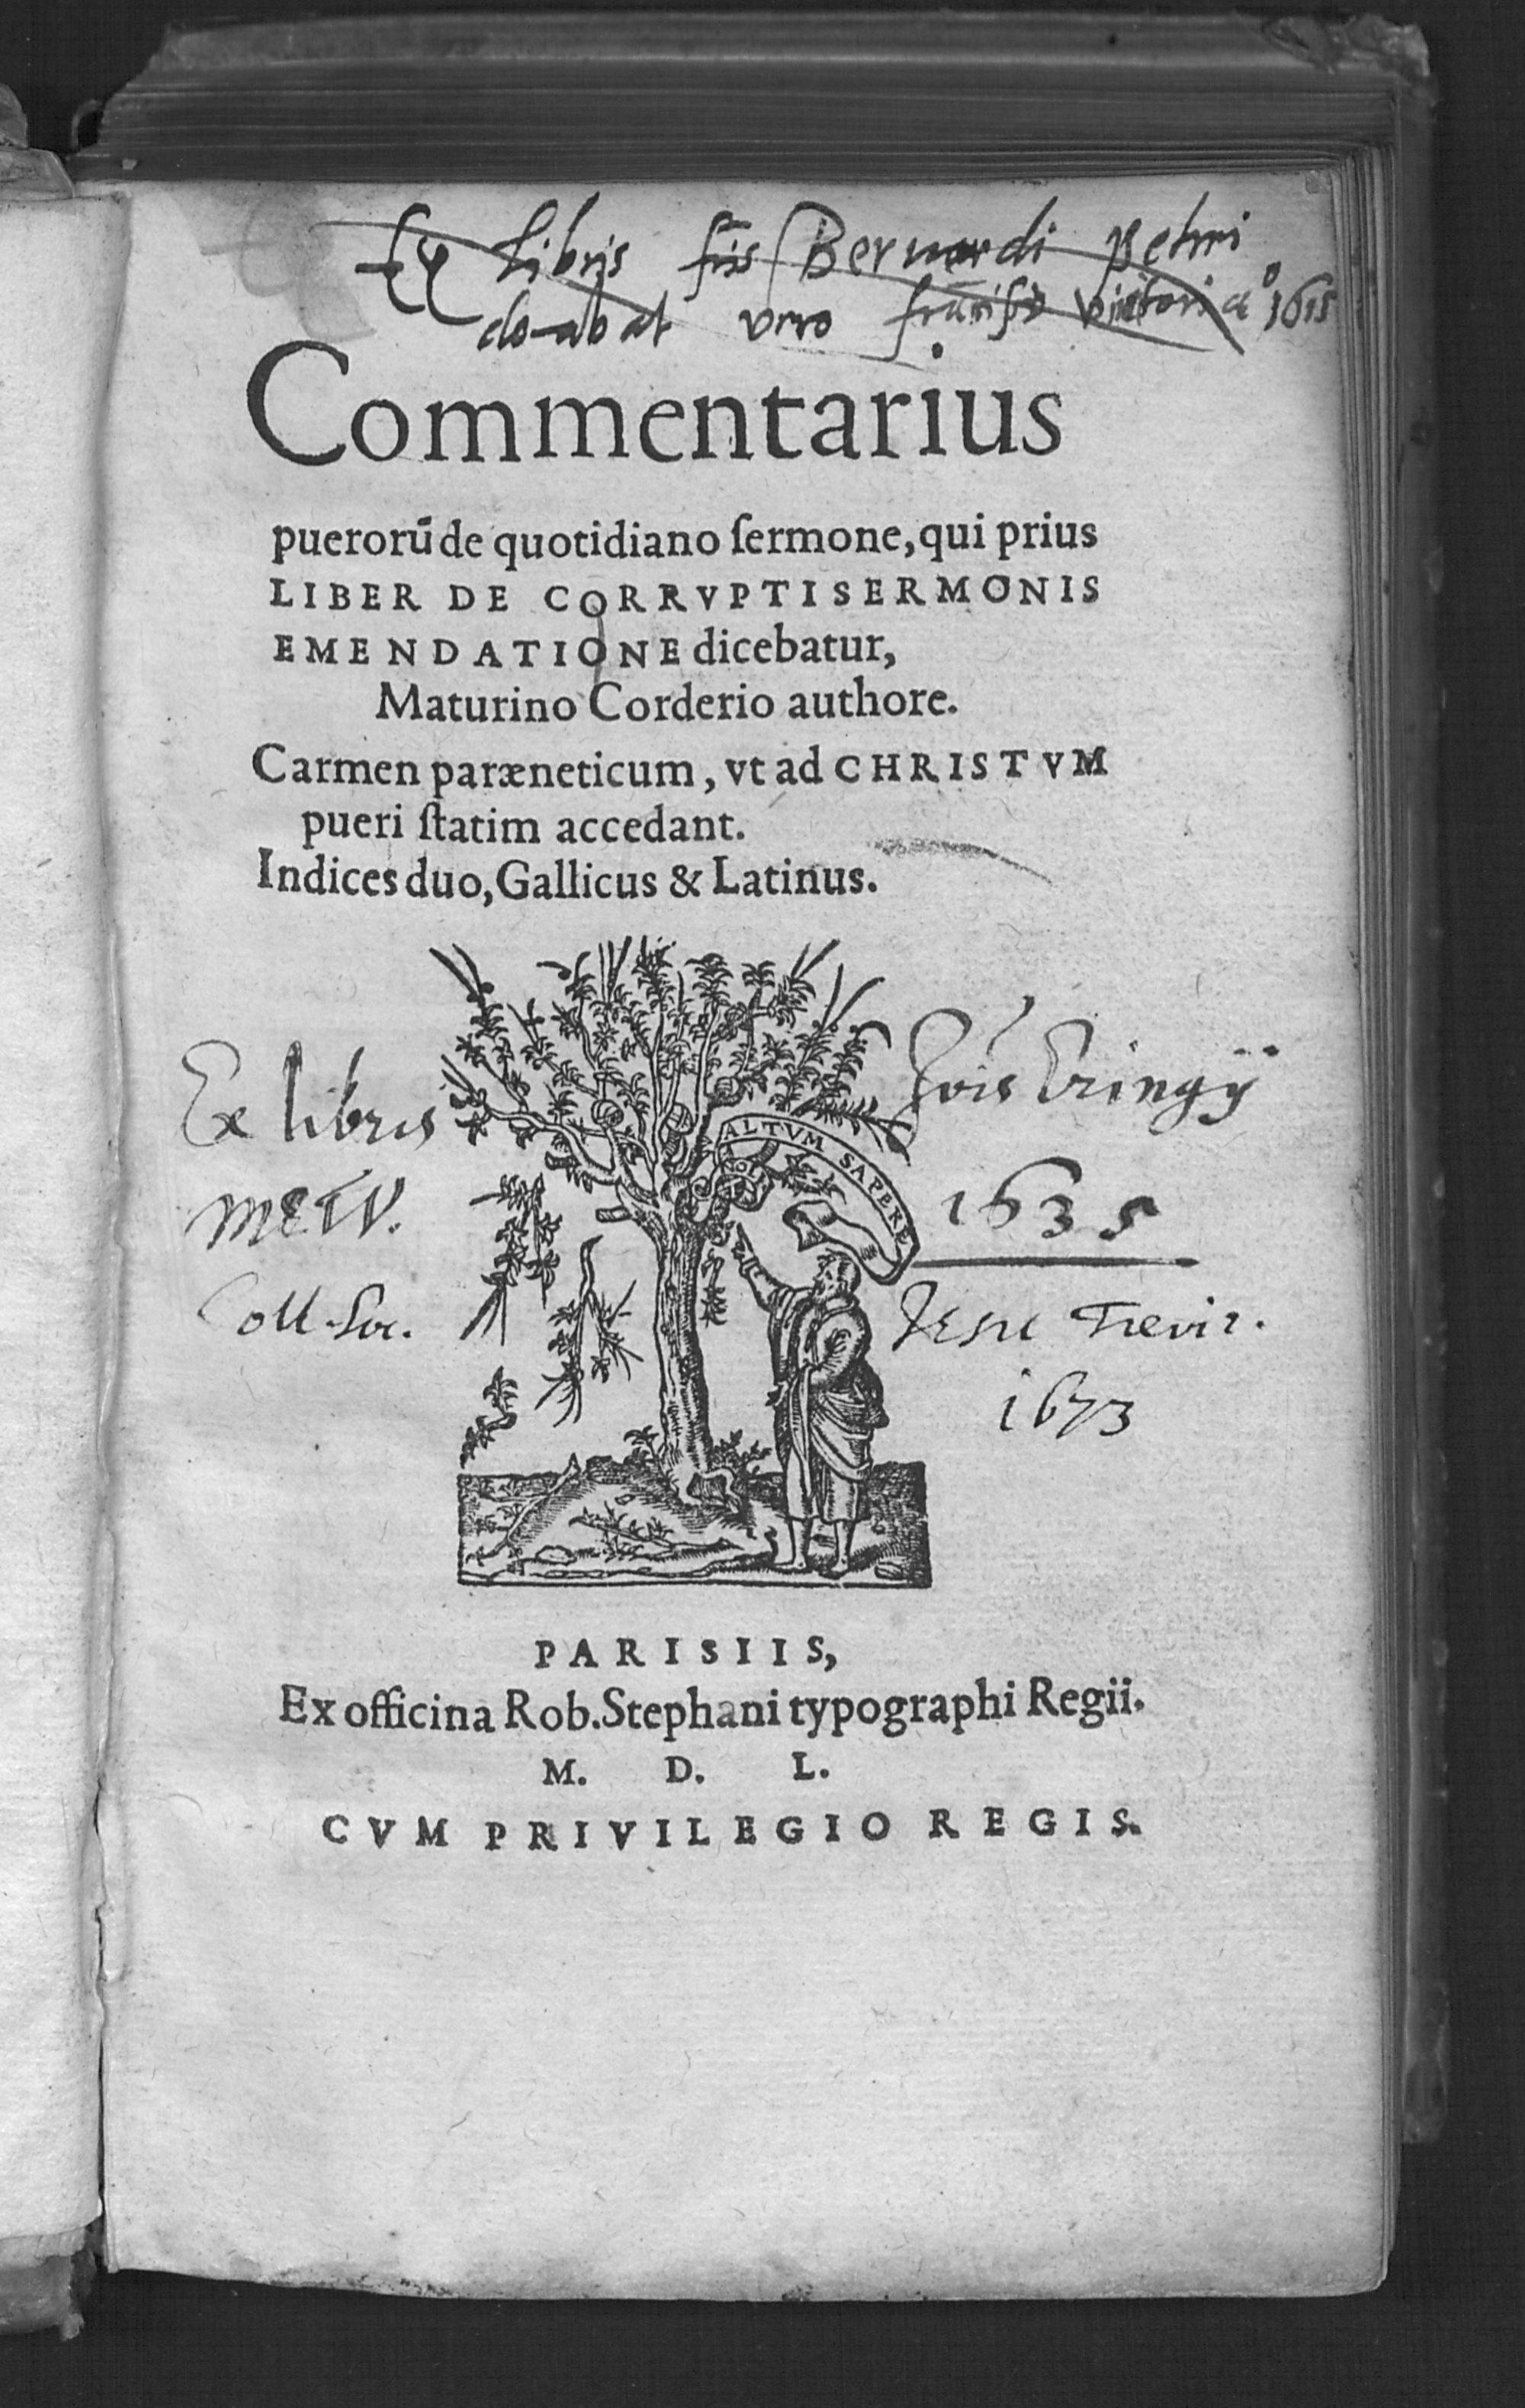 Ex libris fris Bernardi petri
dobabat vero a° 1615
Commentarius
puerorū de quotidiano ſermone, qui prius
LIBER DE CORRVPTI SERMONIS
EMENDATIONE dicebatur,
Maturino Corderio authore.
Carmen paræneticum, vt ad CHRISTVM
pueri ſtatim accedant.
Indices duo, Gallicus & Latinus.
NOLI ALTVM SAPERE
Ex libris Jois Eringij
1635
Coll. Soc. Jesu Trevir.
1673
PARISIIS,
Ex officina Rob. Stephani typographi Regii.
M. D. L.
CVM PRIVILEGIO REGIS.